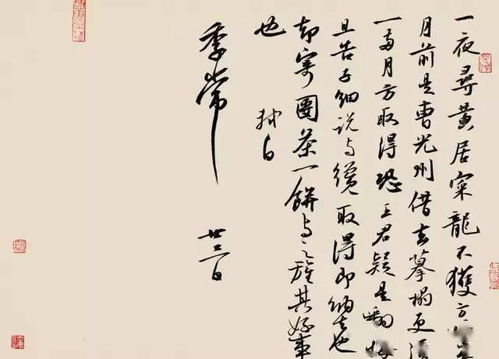 一夜尋黃居寀龍不獲方
月前是曹光州借去摹搨更須
一兩月方取得恐王君疑是翻悔
且告子細說与纔取得即納去也
却寄團茶一餅与之旌其好事
也 軾白
季常
廿三日